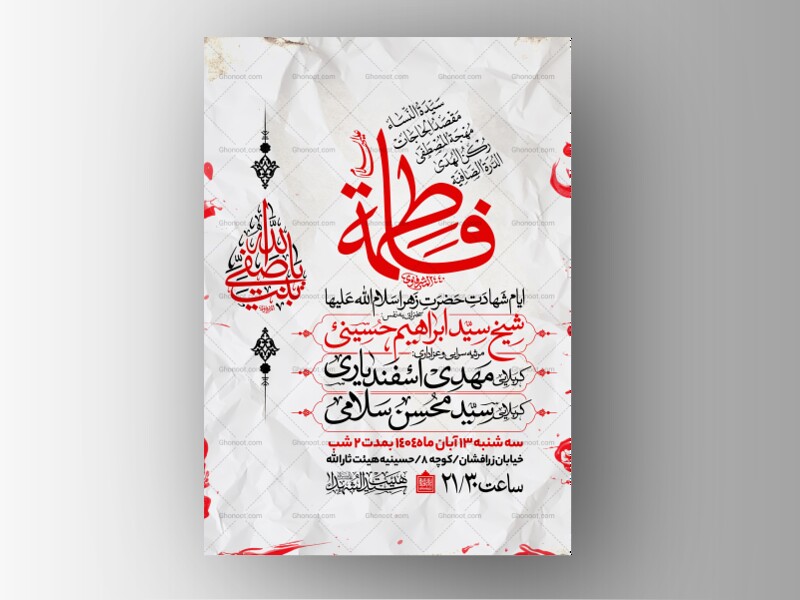 سَیِّدَةُ النِّسَاء
مَقْصَدُ الْحَاجَات
مُهْجَةُ الْمُصْطَفَى
رُكْنُ الْهُدَى
الدُّرَّةُ الصَّافِیَة
فاطمة
ایام شَهادَتِ حَضرَتِ زَهرا سَلامُ اللّٰه عَلیها
شیخ سیّد ابراهیم حسینی
مرثیه سرایی و عزاداری:
کربلایی مهدی اسفندیاری
کربلایی سید محسن سلامی
سه شنبه ۱۳ آبان ماه ۱۴۰۴ بمدت ۲ شب
خیابان زرافشان / کوچه ۸ / حسینیه هیئت ثارالله
ساعت ۲۱/۳۰
هیئت سیدالشهدا
Ghonoot.com